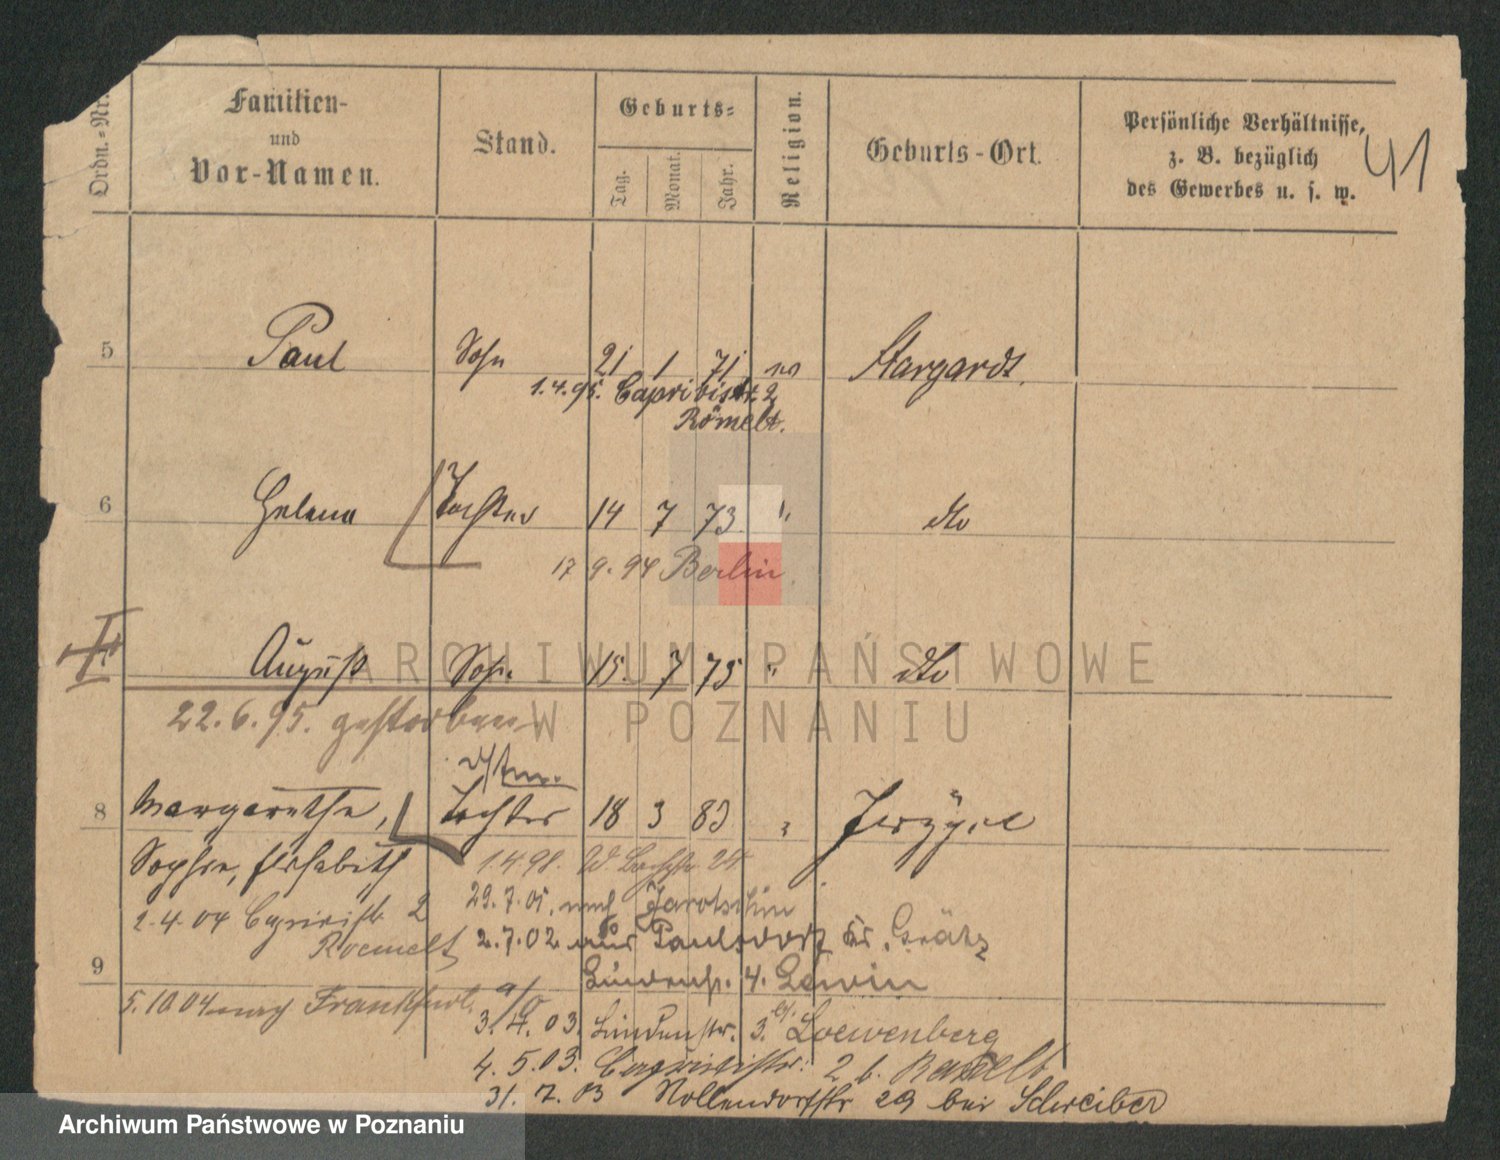 Ordn.-Nr.
Familien-
und
Vor-Namen.
Stand.
Geburts-
Tag.
Monat.
Jahr.
Religion.
Geburts-Ort.
Persönliche Verhältnisse,
z. B. bezüglich
des Gewerbes u. s. w.
41
5 Paul Sohn 21 1 71 Stargardt.
1.4.95. Caprivistr. 2
Römelt.
6 Helena Tochter 14 7 73 " dto
17 9. 94 Berlin.
August Sohn 15. 7 75 " dto
22.6.95. gestorben
8 Margarethe, Tochter 18 3 83 "
Sophie, Elisabeth 1.4.98. 24
29.7.01. nach Jarotschin
2.4.04 Caprivistr. 2
2.7.02 aus Paulsdorf Kr. Grätz
Roemelt
9
Lindenstr. 4. Lewin
5.10 04 nach Frankfurt a/O
3. 4. 03. Lindenstr. 3. Loewenberg
4. 5. 03. Caprivistr. 2 b.
31. 7. 03 Nollendorfstr 29 bei Schreiber
ARCHIWUM PAŃSTWOWE
W POZNANIU
Archiwum Państwowe w Poznaniu